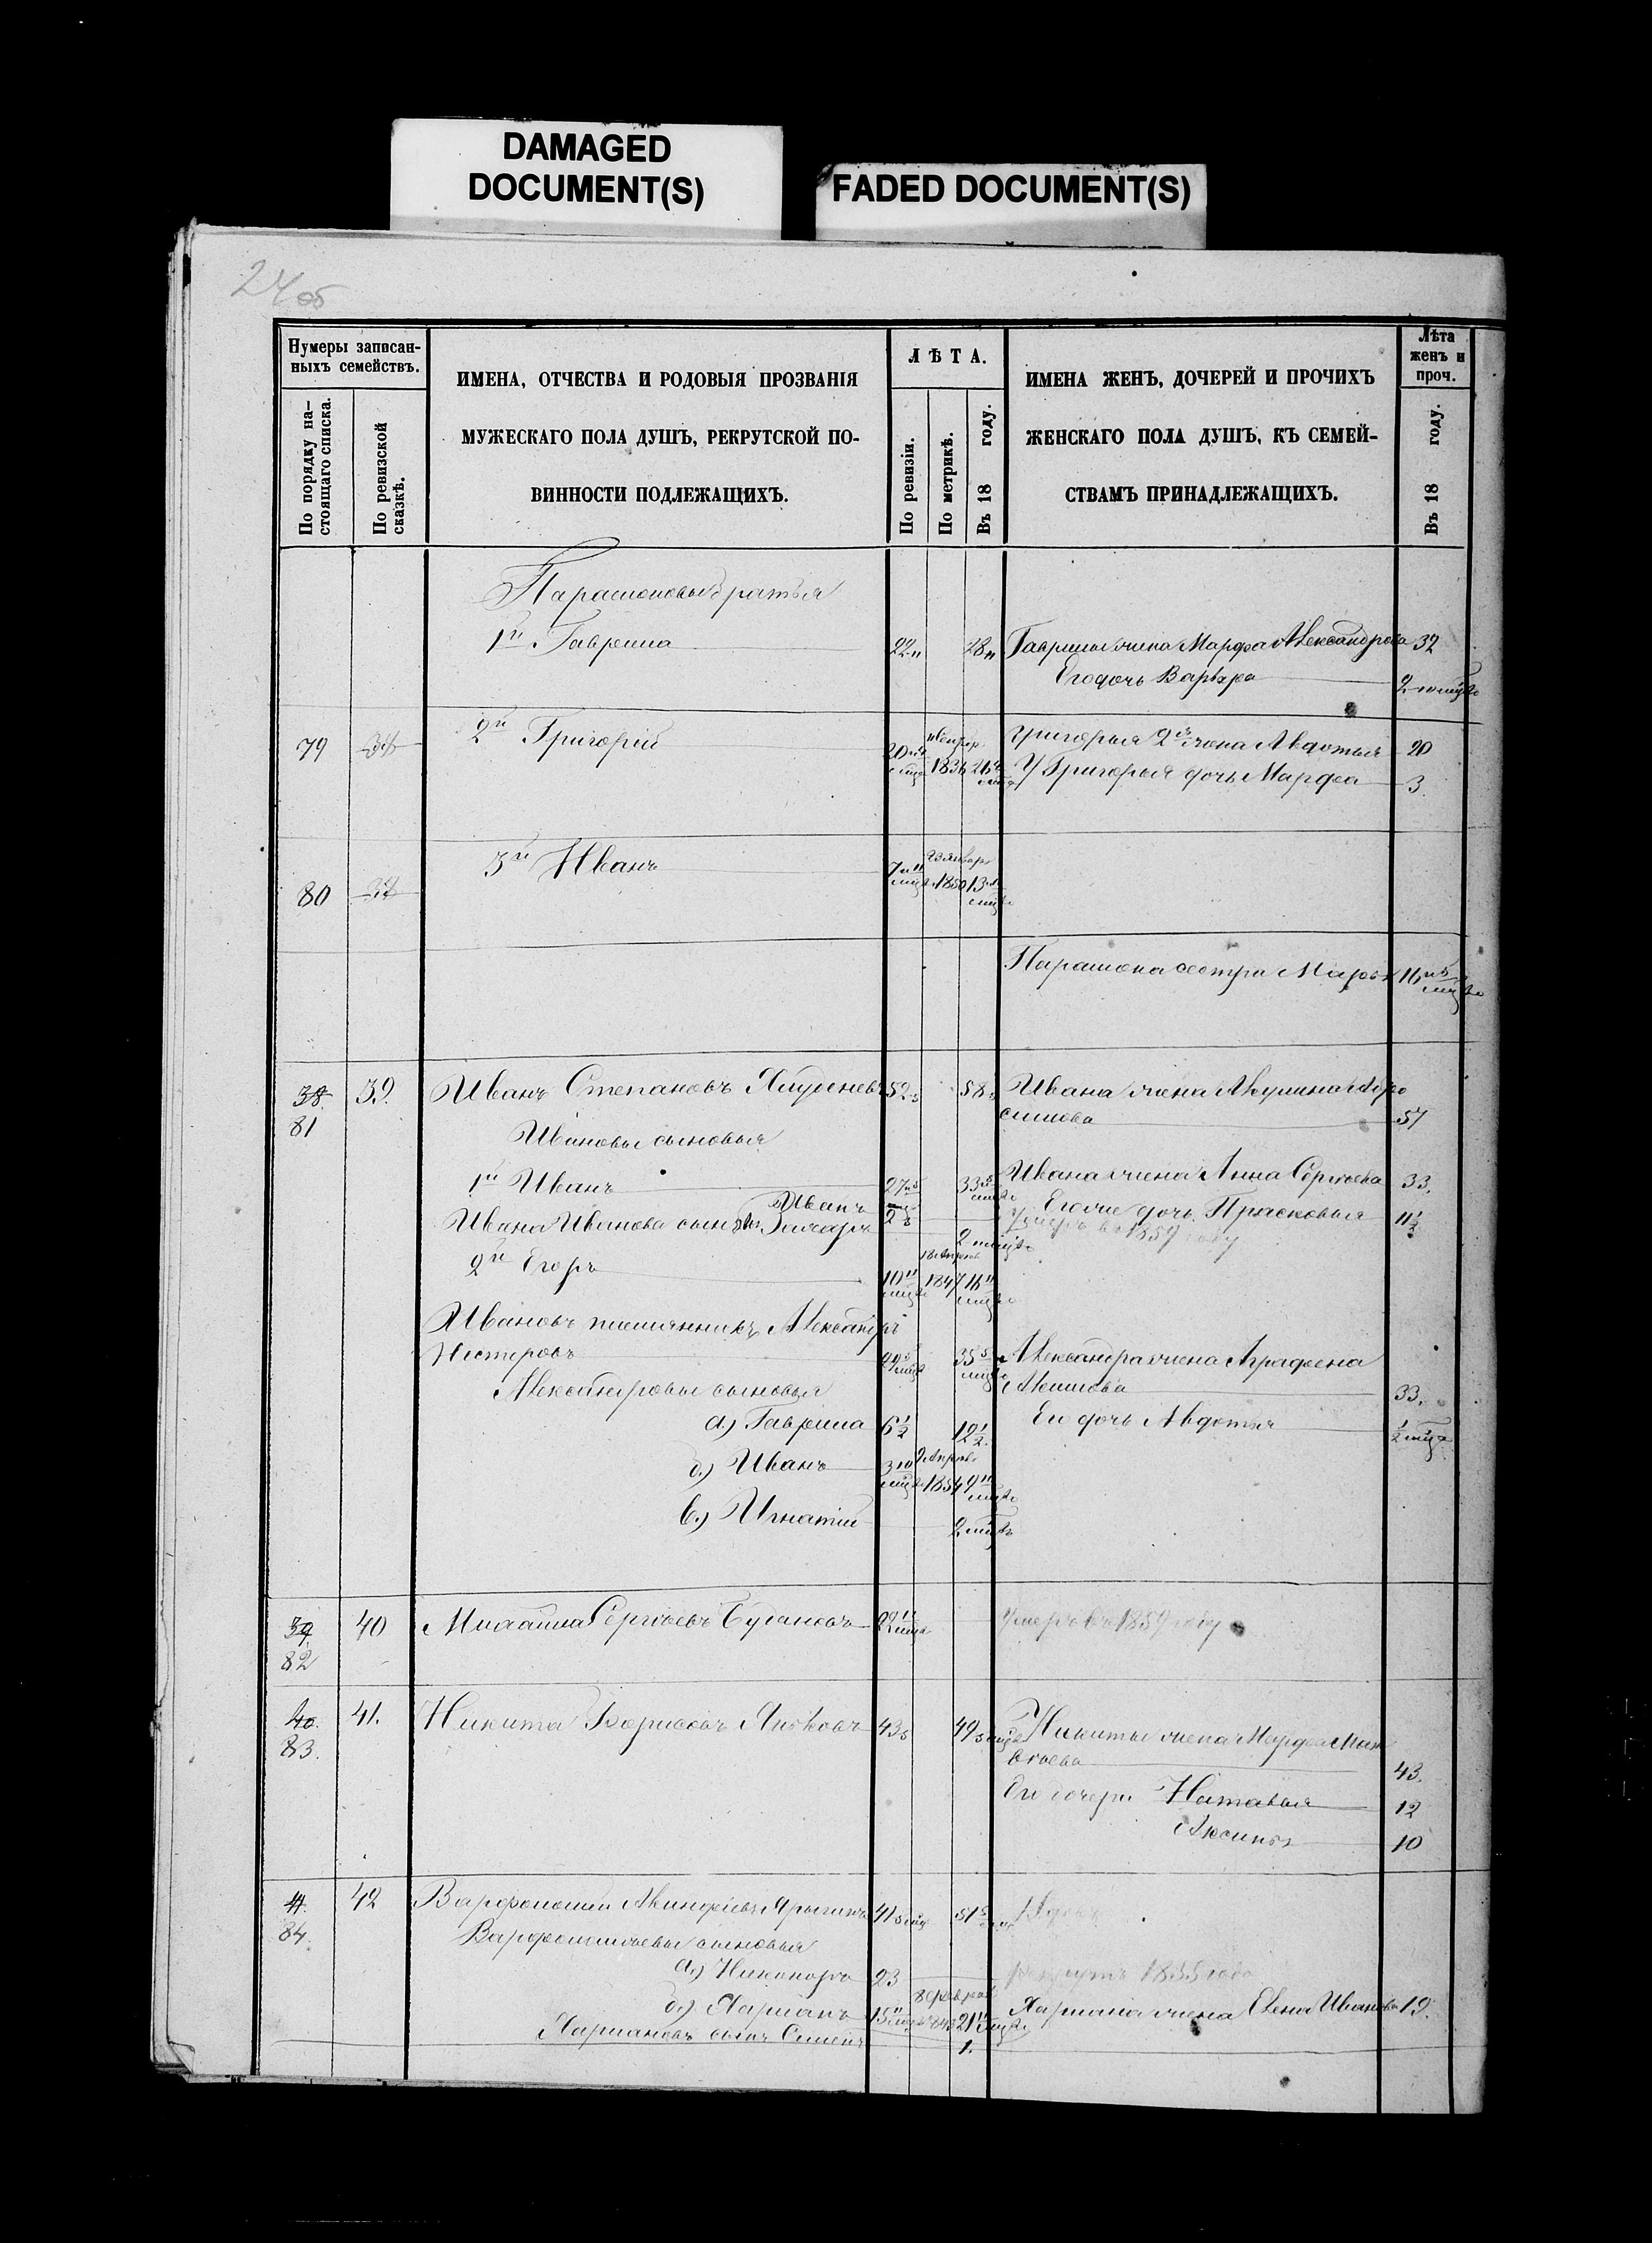 DAMAGED
DOCUMENT(S)
FADED DOCUMENT(S)
24 об
Нумеры записан-
ныхъ семействъ.
По порядку на-
стоящаго списка.
По ревизской
сказкѣ.
ИМЕНА, ОТЧЕСТВА И РОДОВЫЯ ПРОЗВАНІЯ
МУЖЕСКАГО ПОЛА ДУШЪ, РЕКРУТСКОЙ ПО-
ВИННОСТИ ПОДЛЕЖАЩИХЪ.
ЛѢТА.
По ревизіи.
По метрикѣ.
Въ 18 году.
ИМЕНА ЖЕНЪ, ДОЧЕРЕЙ И ПРОЧИХЪ
ЖЕНСКАГО ПОЛА ДУШЪ, КЪ СЕМЕЙ-
СТВАМЪ ПРИНАДЛЕЖАЩИХЪ.
Лѣта
женъ и
проч.
Въ 18 году.
Парамоновы братья
1й Гаврила 22 28 Гаврилы жена Марфа Александрова 32
Его дочь Варвара
79 38 2й Григорій 20 1836 26 Григорья 2я жена Авдотья 20
У Григорья дочь Марфа 3
80 38 3й Иванъ 7 23 Январ 1850 13
Парамона сестра Марья 16
38. 39. Иванъ Степановъ 52 58 Ивана жена Акулина
81 57
Ивановы сыновья
1й Иванъ 27 33 Ивана жена Анна Сергѣева 33.
Ивана Иванова сынъ Иванъ 2 Его же дочь Прасковья 11½
умеръ въ 1859 году
2й Егоръ 10 1847 16
Ивановъ племянникъ Александръ
Нестеровъ 29 35 Александра жена Аграфена
Акимова 33.
Александровы сыновья
а.) Гаврила 6½ 12½ Его дочь Авдотья
б.) Иванъ 3 1854 9
в.) Игнатій
39. 40 Михайла Сергѣевъ 22 умеръ въ 1859 году
82
40. 41. Никита Борисовъ 43 49 Никиты жена Марфа Мат
83. вѣева 43.
Его дочери Наталья 12
Аксинья 10
41. 42 Варфоломей 41 51 Вдовъ
84.
Варфоломеевы сыновья
а.) Никаноръ 23 рекрутъ 1855 года
б.) Ларіанъ 15 8 Феврал 21 Ларіана жена Елена Иванова 19.
Ларіановъ сынъ Семенъ 1.